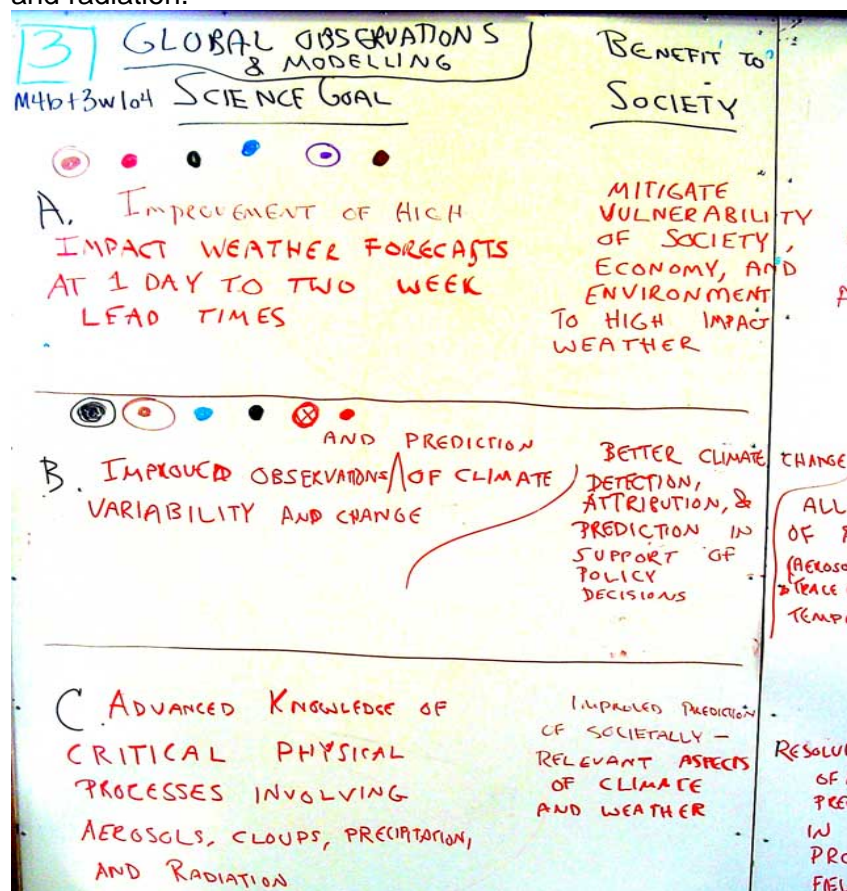 and radiation.
3
GLOBAL OBSERVATIONS
& MODELLING
M4b+3w1o4 SCIENCE GOAL
BENEFIT TO
SOCIETY
A. IMPROVEMENT OF HIGH
IMPACT WEATHER FORECASTS
AT 1 DAY TO TWO WEEK
LEAD TIMES
MITIGATE
VULNERABILITY
OF SOCIETY,
ECONOMY, AND
ENVIRONMENT
TO HIGH IMPACT
WEATHER
AND PREDICTION
B. IMPROVED OBSERVATIONS OF CLIMATE
VARIABILITY AND CHANGE
BETTER CLIMATE CHANGE
DETECTION,
ATTRIBUTION, &
PREDICTION IN
SUPPORT OF
POLICY
DECISIONS
ALL
OF
TRACE
C. ADVANCED KNOWLEDGE OF
CRITICAL PHYSICAL
PROCESSES INVOLVING
AEROSOLS, CLOUDS, PRECIPITATION,
AND RADIATION
IMPROVED PREDICTION
OF SOCIETALLY-
RELEVANT ASPECTS
OF CLIMATE
AND WEATHER
OF
IN